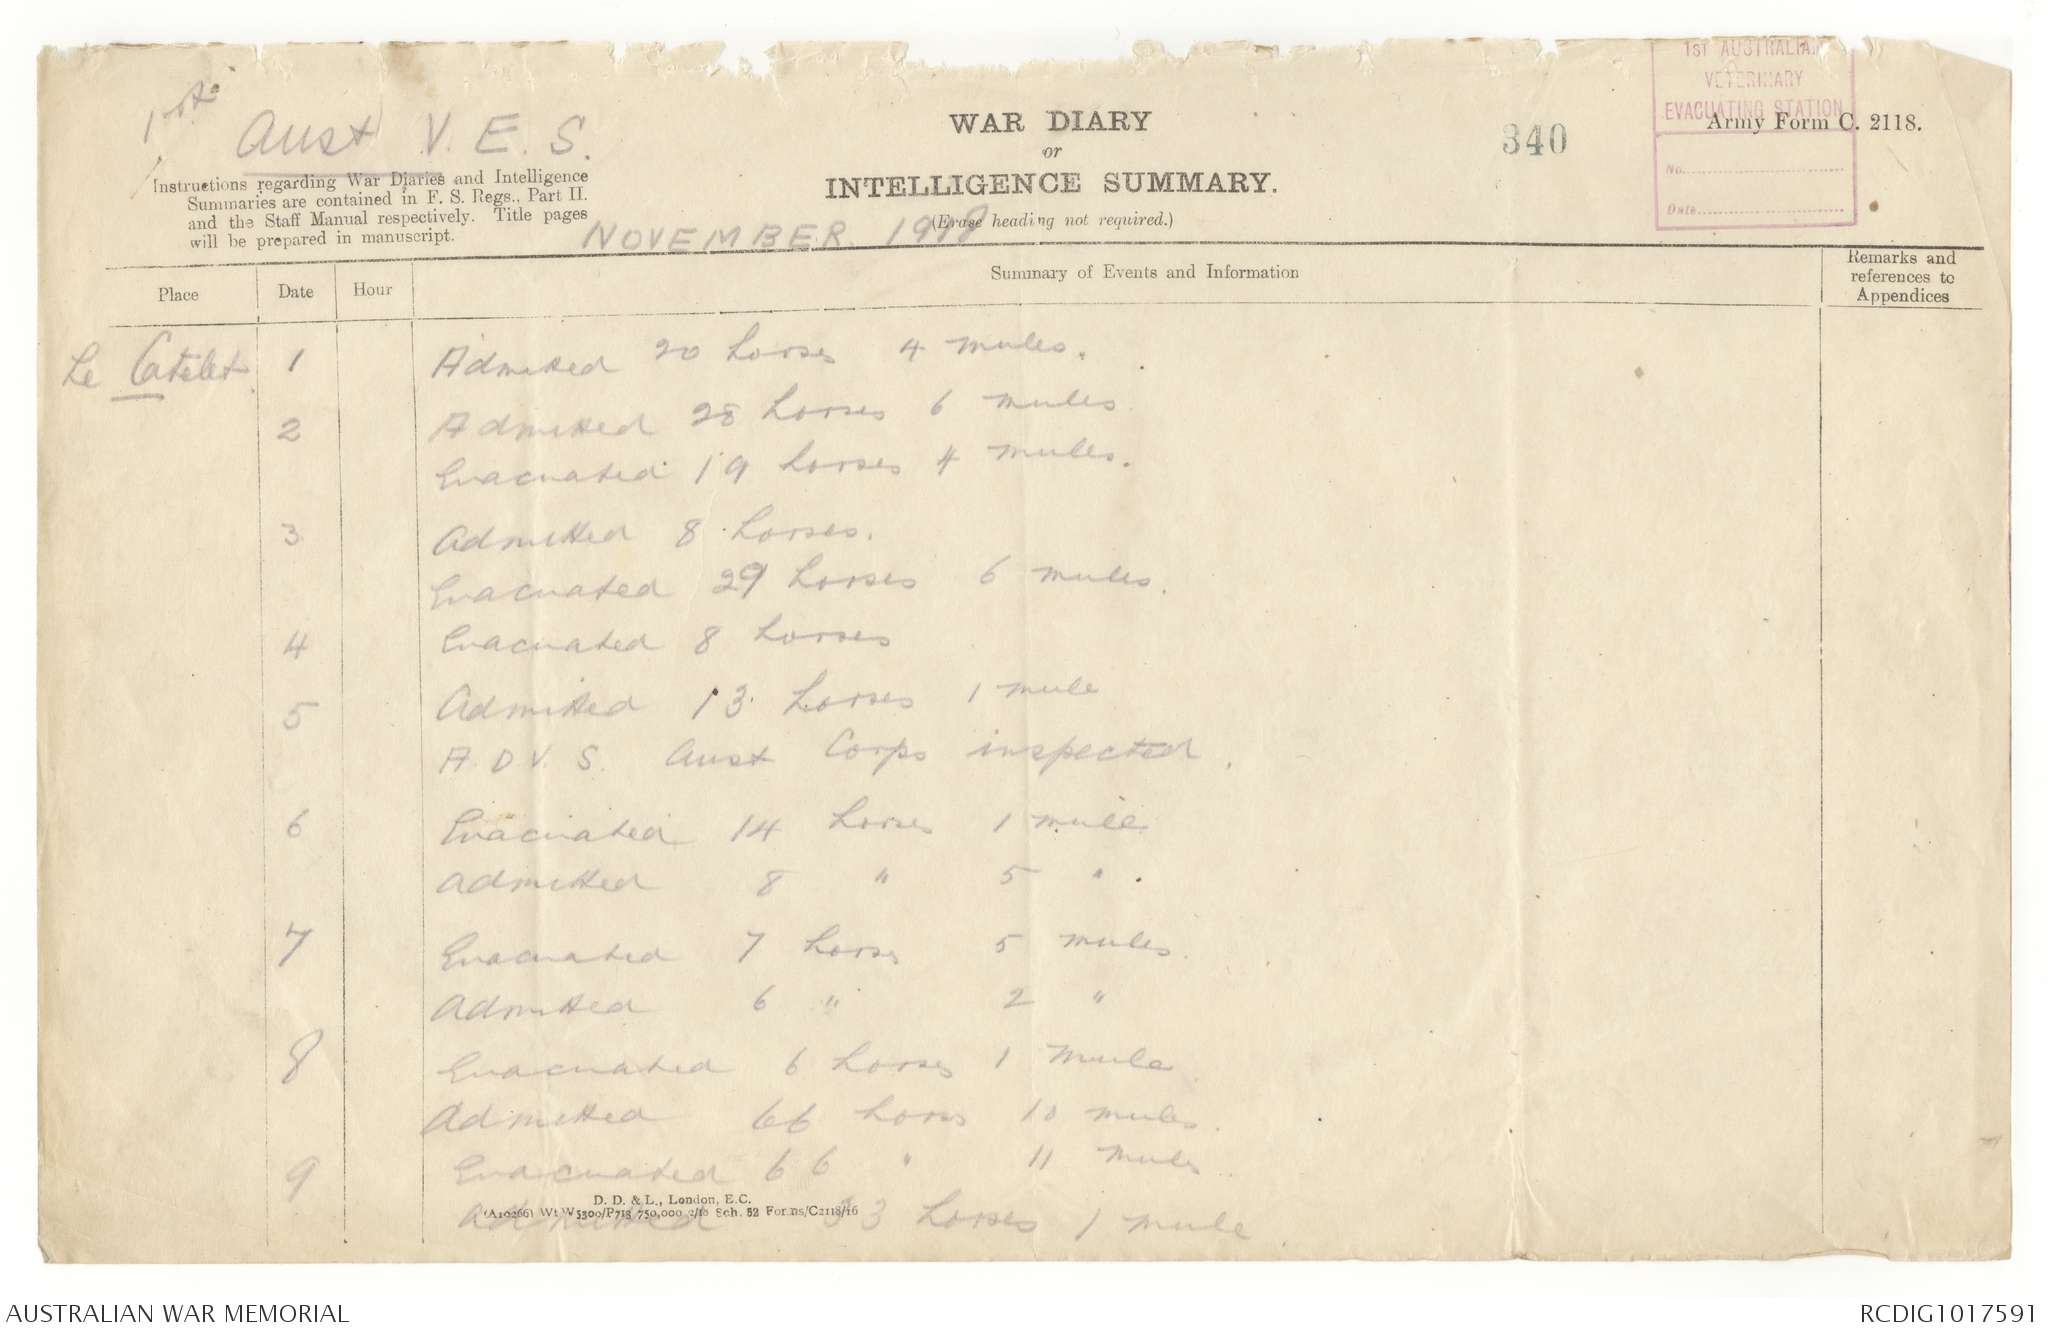 1st
Aust V. E. S.
Instructions regarding War Diaries and Intelligence
Summaries are contained in F. S. Regs., Part II.
and the Staff Manual respectively. Title pages
will be prepared in manuscript.
WAR DIARY
or
INTELLIGENCE SUMMARY.
(Erase heading not required.)
NOVEMBER 1918
340
1ST AUSTRALIAN
VETERINARY
EVACUATING STATION
No.
Date
Army Form C. 2118.
Place
Date
Hour
Summary of Events and Information
Remarks and
references to
Appendices
Le Catelet. 1 Admitted 20 horses 4 mules.
2 Admitted 28 horses 6 mules
Evacuated 19 horses 4 mules.
3 Admitted 8 horses.
Evacuated 29 horses 6 mules.
4 Evacuated 8 horses
5 Admitted 13 horses 1 mule
A. D V. S. Aust Corps inspected.
6 Evacuated 14 horses 1 mule
admitted 8 " 5 " .
7 Evacuated 7 horses 5 mules.
Admitted 6 " 2 "
8 Evacuated 6 horses 1 Mule.
Admitted 66 horses 10 mules.
9 Evacuated 66 " 11 mules
Admitted 33 horses 1 mule
D. D. & L., London, E.C.
(A10266) Wt W5300/P713 750,000 2/18 Sch. 52 Forms/C2118/16
AUSTRALIAN WAR MEMORIAL
RCDIG1017591